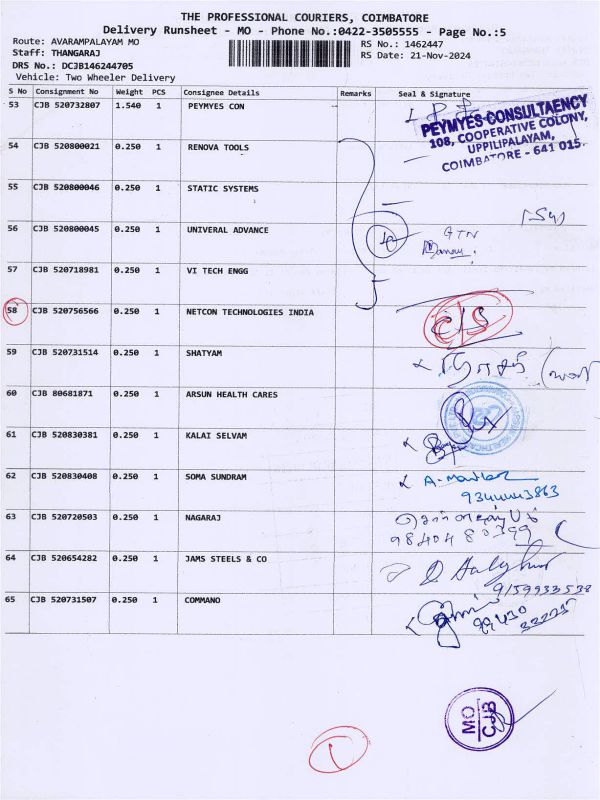 THE PROFESSIONAL COURIERS, COIMBATORE
Delivery Runsheet - MO - Phone No.:0422-3505555 - Page No.:5
Route: AVARAMPALAYAM MO
RS No.: 1462447
Staff: THANGARAJ
RS Date: 21-Nov-2024
DRS No.: DCJB146244705
Vehicle: Two Wheeler Delivery
S No Consignment No Weight PCS Consignee Details Remarks Seal & Signature
53 CJB 520732807 1.540 1 PEYMYES CON
PEYMYES CONSULTAENCY
108, COOPERATIVE COLONY,
UPPILIPALAYAM,
COIMBATORE - 641 015.
54 CJB 520800021 0.250 1 RENOVA TOOLS
55 CJB 520800046 0.250 1 STATIC SYSTEMS
56 CJB 520800045 0.250 1 UNIVERAL ADVANCE
GTN
57 CJB 520718981 0.250 1 VI TECH ENGG
58 CJB 520756566 0.250 1 NETCON TECHNOLOGIES INDIA
59 CJB 520731514 0.250 1 SHATYAM
60 CJB 80681871 0.250 1 ARSUN HEALTH CARES
61 CJB 520830381 0.250 1 KALAI SELVAM
62 CJB 520830408 0.250 1 SOMA SUNDRAM
9344443863
63 CJB 520720503 0.250 1 NAGARAJ
9840480399
64 CJB 520654282 0.250 1 JAMS STEELS & CO
9159933538
65 CJB 520731507 0.250 1 COMMANO
MO
CJB
1